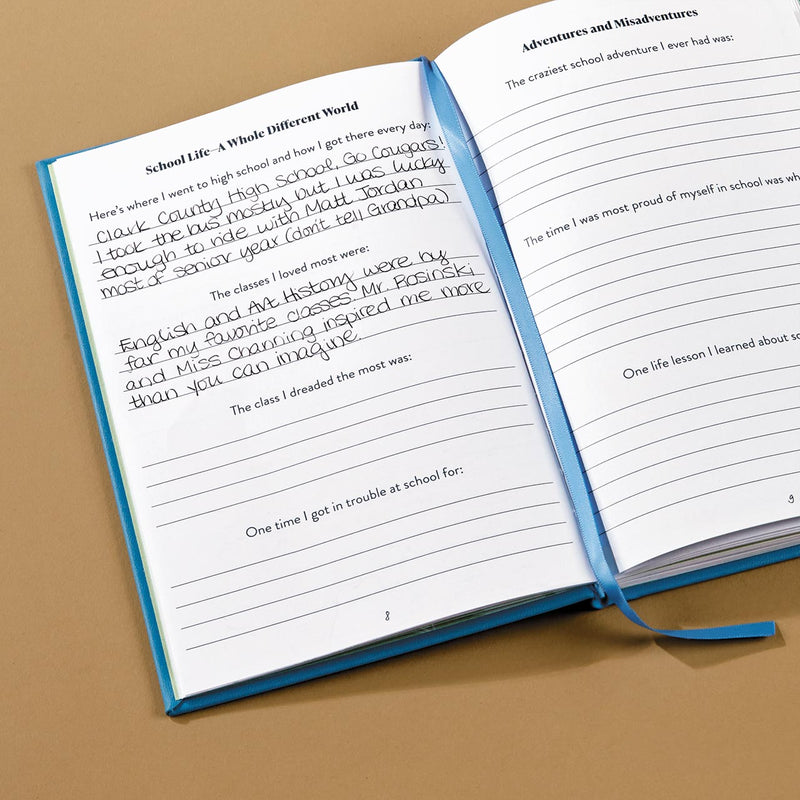 School Life—A Whole Different World
Here's where I went to high school and how I got there every day:
Clark County High School, Go Cougars!
I took the bus mostly but I was lucky
enough to ride with Matt Jordan
most of senior year (don't tell Grandpa)
The classes I loved most were:
English and Art History were by
far my favorite classes. Mr. Rosinski
and Miss Channing inspired me more
than you can imagine.
The class I dreaded the most was:
One time I got in trouble at school for:
8
Adventures and Misadventures
The craziest school adventure I ever had was:
The time I was most proud of myself in school was
One life lesson I learned about
9